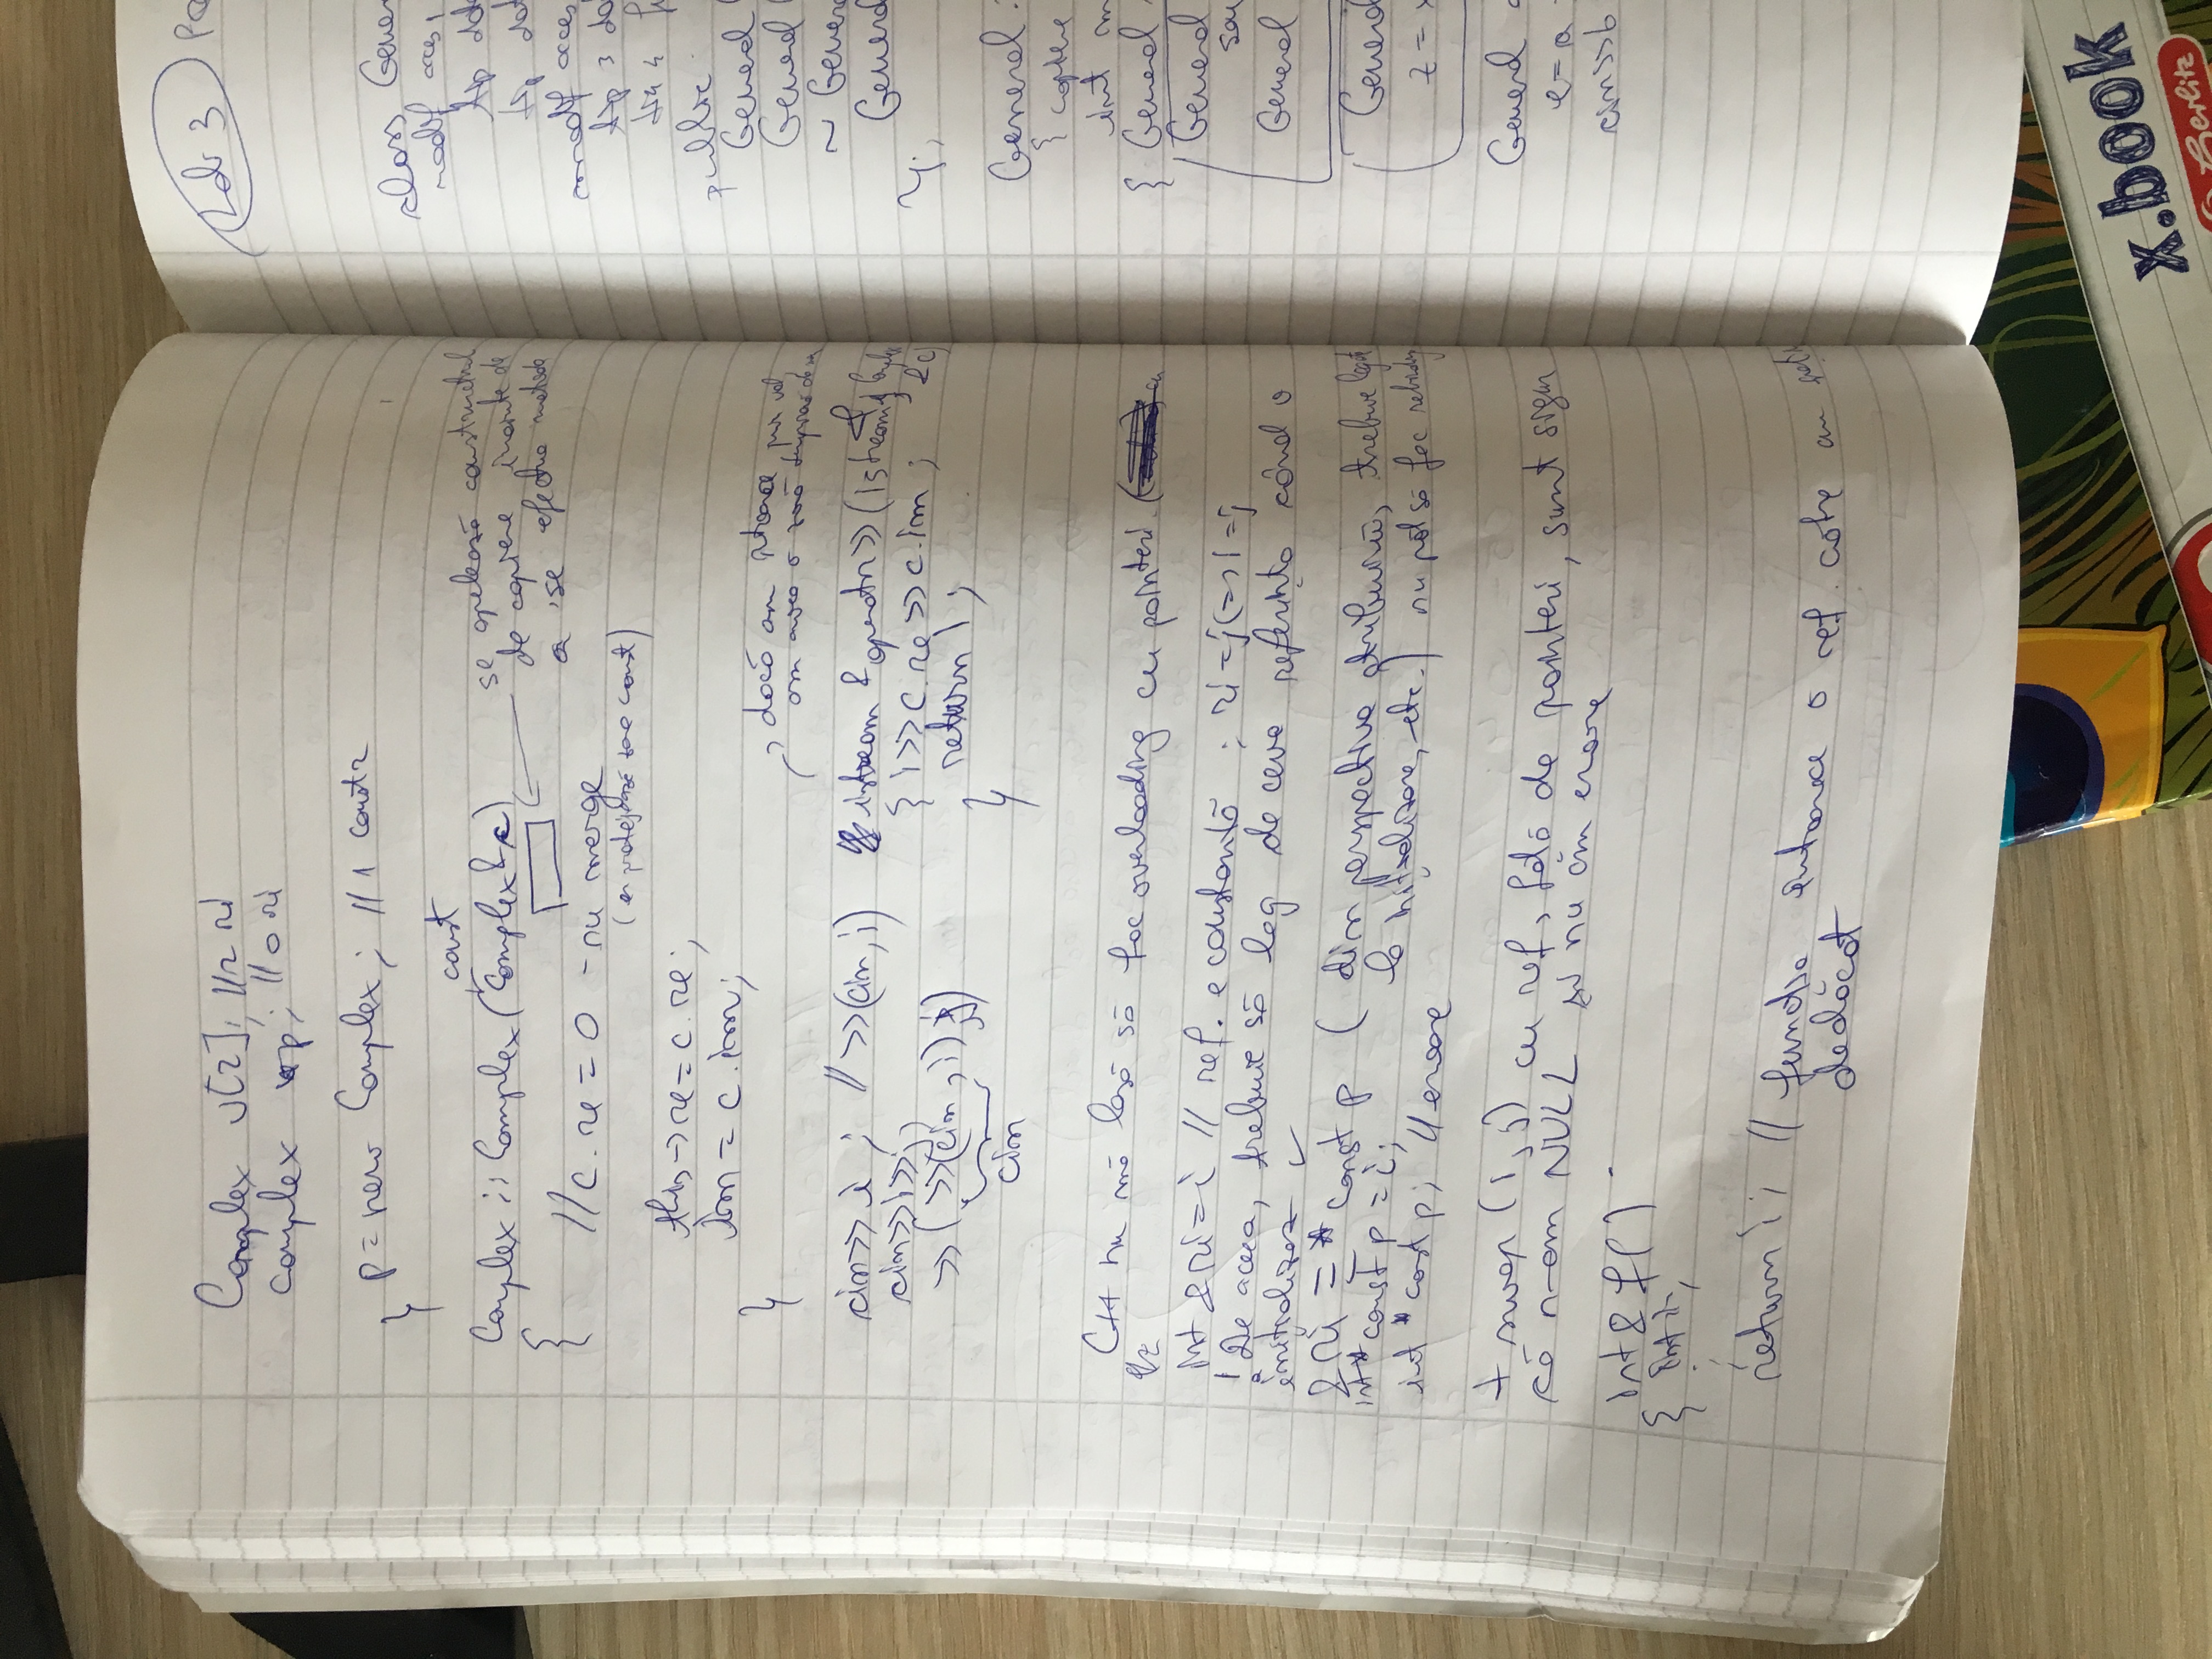 Complex v[2]; // 2 ri
Complex *p; // 0 ri
p = new Complex; // 1 constr
}
const
Complex :: Complex (Complex & c)
se apelează constructorul
de copiere înainte de
a se efectua metoda
{
//c.re = 0 - nu merge
const)
this->re = c.re;
im = c.im;
}
dacă am întoarce prin val,
am avea o
cin>>i; // >>(cin, i)
istream & operator>> (istream & i, Complex
&c)
cin>>i>>j;
{ i>>c.re>>c.im;
>>( >>(cin, i) j)
return i;
cin
}
C++ nu mă lasă să fac overloading cu pointeri (cu
int &ri = i // ref. e constantă ; ri=j <=> i=j
! De aceea, trebuie să leg de ceva referința când o
inițializez ✓
&ri = * const p ( din perspectiva atribuirii, trebuie legate
int* const p = i;
la inițializare, etc.) nu pot să fac rebinding
int * const p; // eroare
+ swap (i, j) cu ref, față de pointeri, sunt sigur
că n-am NULL și nu am eroare
int & f( )
{ int i;
return i; // funcția întoarce o ref. către un
Lab 3
class Gener
modif acces,
tip dat
tip dat
modif acces,
tip 3 da
public
General (
General (
~ Genera
General
};
General :
{ copiere
int m
{ General
General
sau
General
General
z = x
General a
e = a
cin>>b
x.book
Herlitz